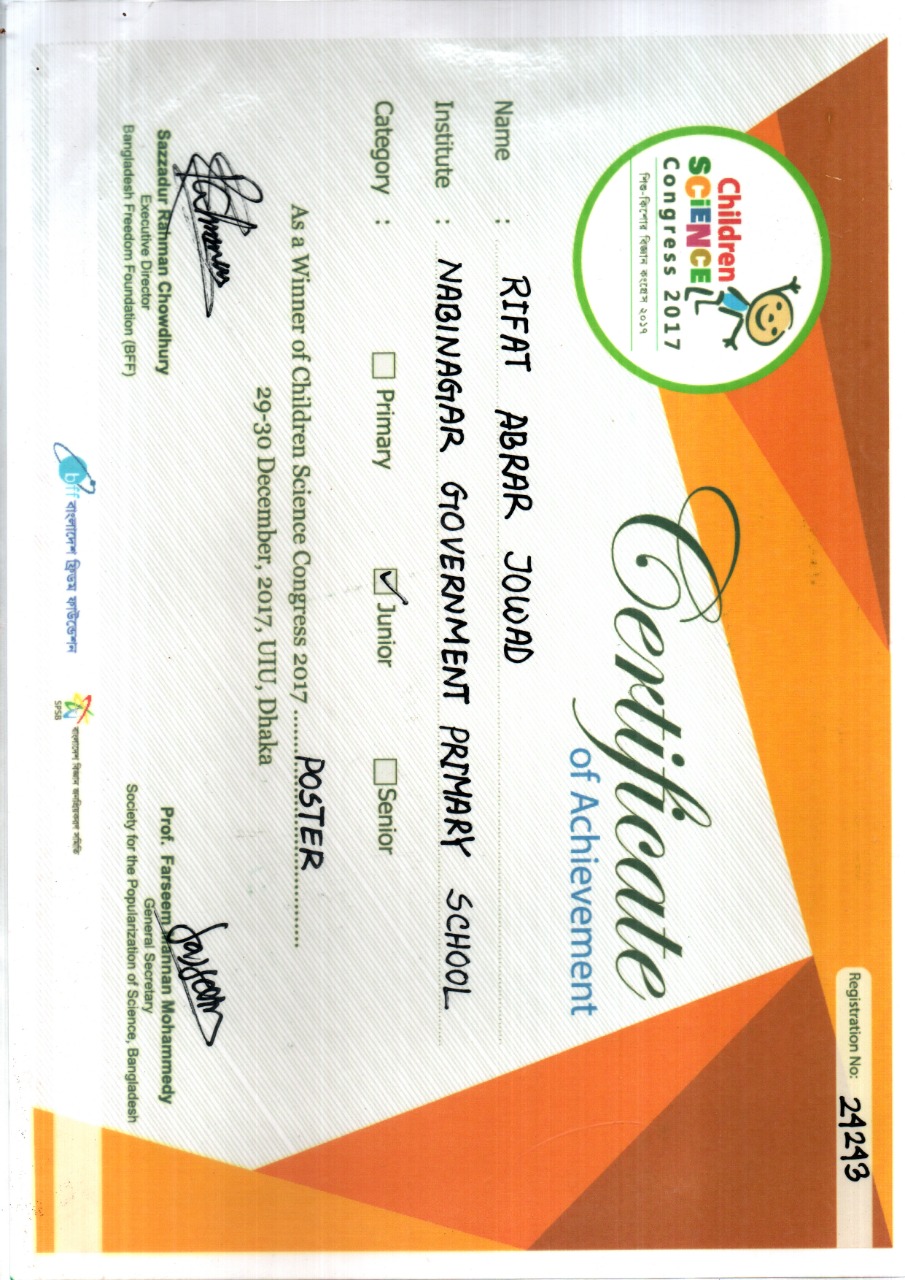 Registration No: 24243
Children
SCiENCE
Congress 2017
শিশু-কিশোর বিজ্ঞান কংগ্রেস ২০১৭
Certificate
of Achievement
Name : RIFAT ABRAR JOWAD
Institute : NABINAGAR GOVERNMENT PRIMARY SCHOOL
Category : Primary Junior Senior
As a Winner of Children Science Congress 2017 ........POSTER........
29-30 December, 2017, UIU, Dhaka
Sazzadur Rahman Chowdhury
Executive Director
Bangladesh Freedom Foundation (BFF)
Prof. Farseem Mannan Mohammedy
General Secretary
Society for the Popularization of Science, Bangladesh
bff বাংলাদেশ ফ্রিডম ফাউন্ডেশন
SPSB বাংলাদেশ বিজ্ঞান জনপ্রিয়করণ সমিতি